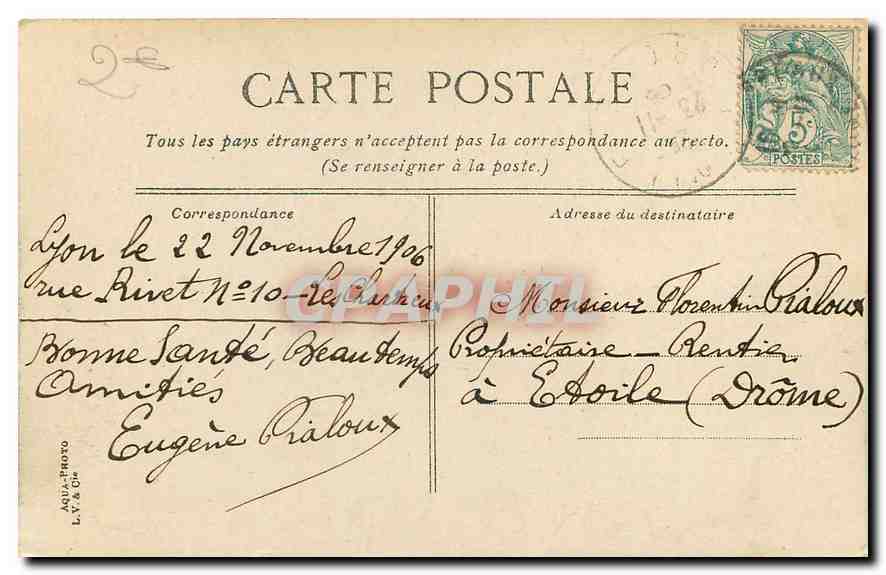 2€
CARTE POSTALE
Tous les pays étrangers n'acceptent pas la correspondance au recto.
(Se renseigner à la poste.)
5c
POSTES
Correspondance
Lyon le 22 Novembre 1906
rue Rivet No 10 – Les Chartreux
Bonne Santé, Beau temps
Amitiés
Eugène Pialoux
AQUA-PHOTO
L.V. & Cie
Adresse du destinataire
Monsieur Florentin Pialoux
Propriétaire – Rentier
à Etoile (Drôme)
CPAPHIL